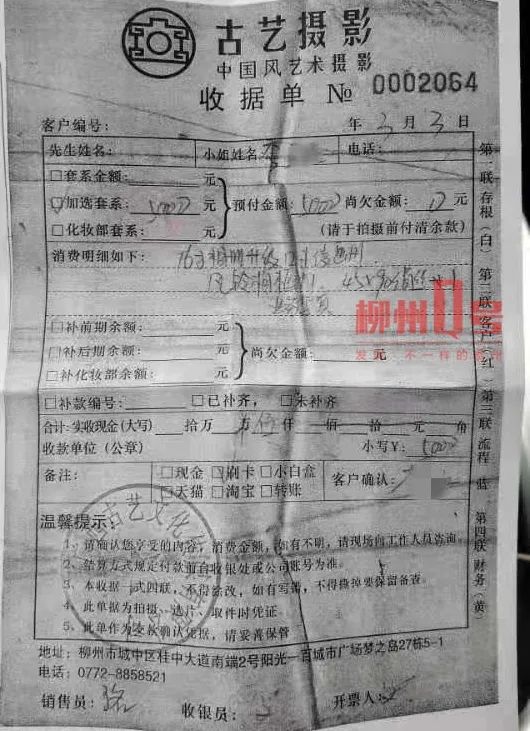 古艺摄影
中国风艺术摄影
收据单 № 0002064
客户编号: 年 3 月 3 日
先生姓名: 小姐姓名 李 电话:
□套系金额: 元
□加选套系: 5000 元 预付金额: 5000 尚欠金额: 0 元
□化妆部套系: 元 (请于拍摄前付清余款)
消费明细如下: 16寸相册升级12寸
柳州1号
发现·不一样的柳州
□补前期余额: 元
□补后期余额: 元 尚欠金额: 元
□补化妆部余额: 元
□补款编号: □已补齐, □未补齐
合计:实收现金(大写) 拾万 万 伍 仟 佰 拾 元 角
收款单位(公章) 小写¥: 5000
备注: □现金 □刷卡 □小白盒 客户确认:
□天猫 □淘宝 □转账
温馨提示:
1、请确认您享受的内容,消费金额,如有不明,请现场向工作人员咨询。
2、结算方式规定付款前自收银处或公司账号为准。
3、本收据一式四联,不得涂改,如有写错,不得撕掉要保留备查。
4、此单据为拍摄、选片、取件时凭证
5、此单作为交款确认凭据,请妥善保管
古艺文化
地址:柳州市城中区桂中大道南端2号阳光一百城市广场梦之岛27栋5-1
电话:0772-8858521
销售员: 收银员: 开票人:
第一联 存根(白) 第二联 客户(红) 第三联 流程(蓝) 第四联 财务(黄)